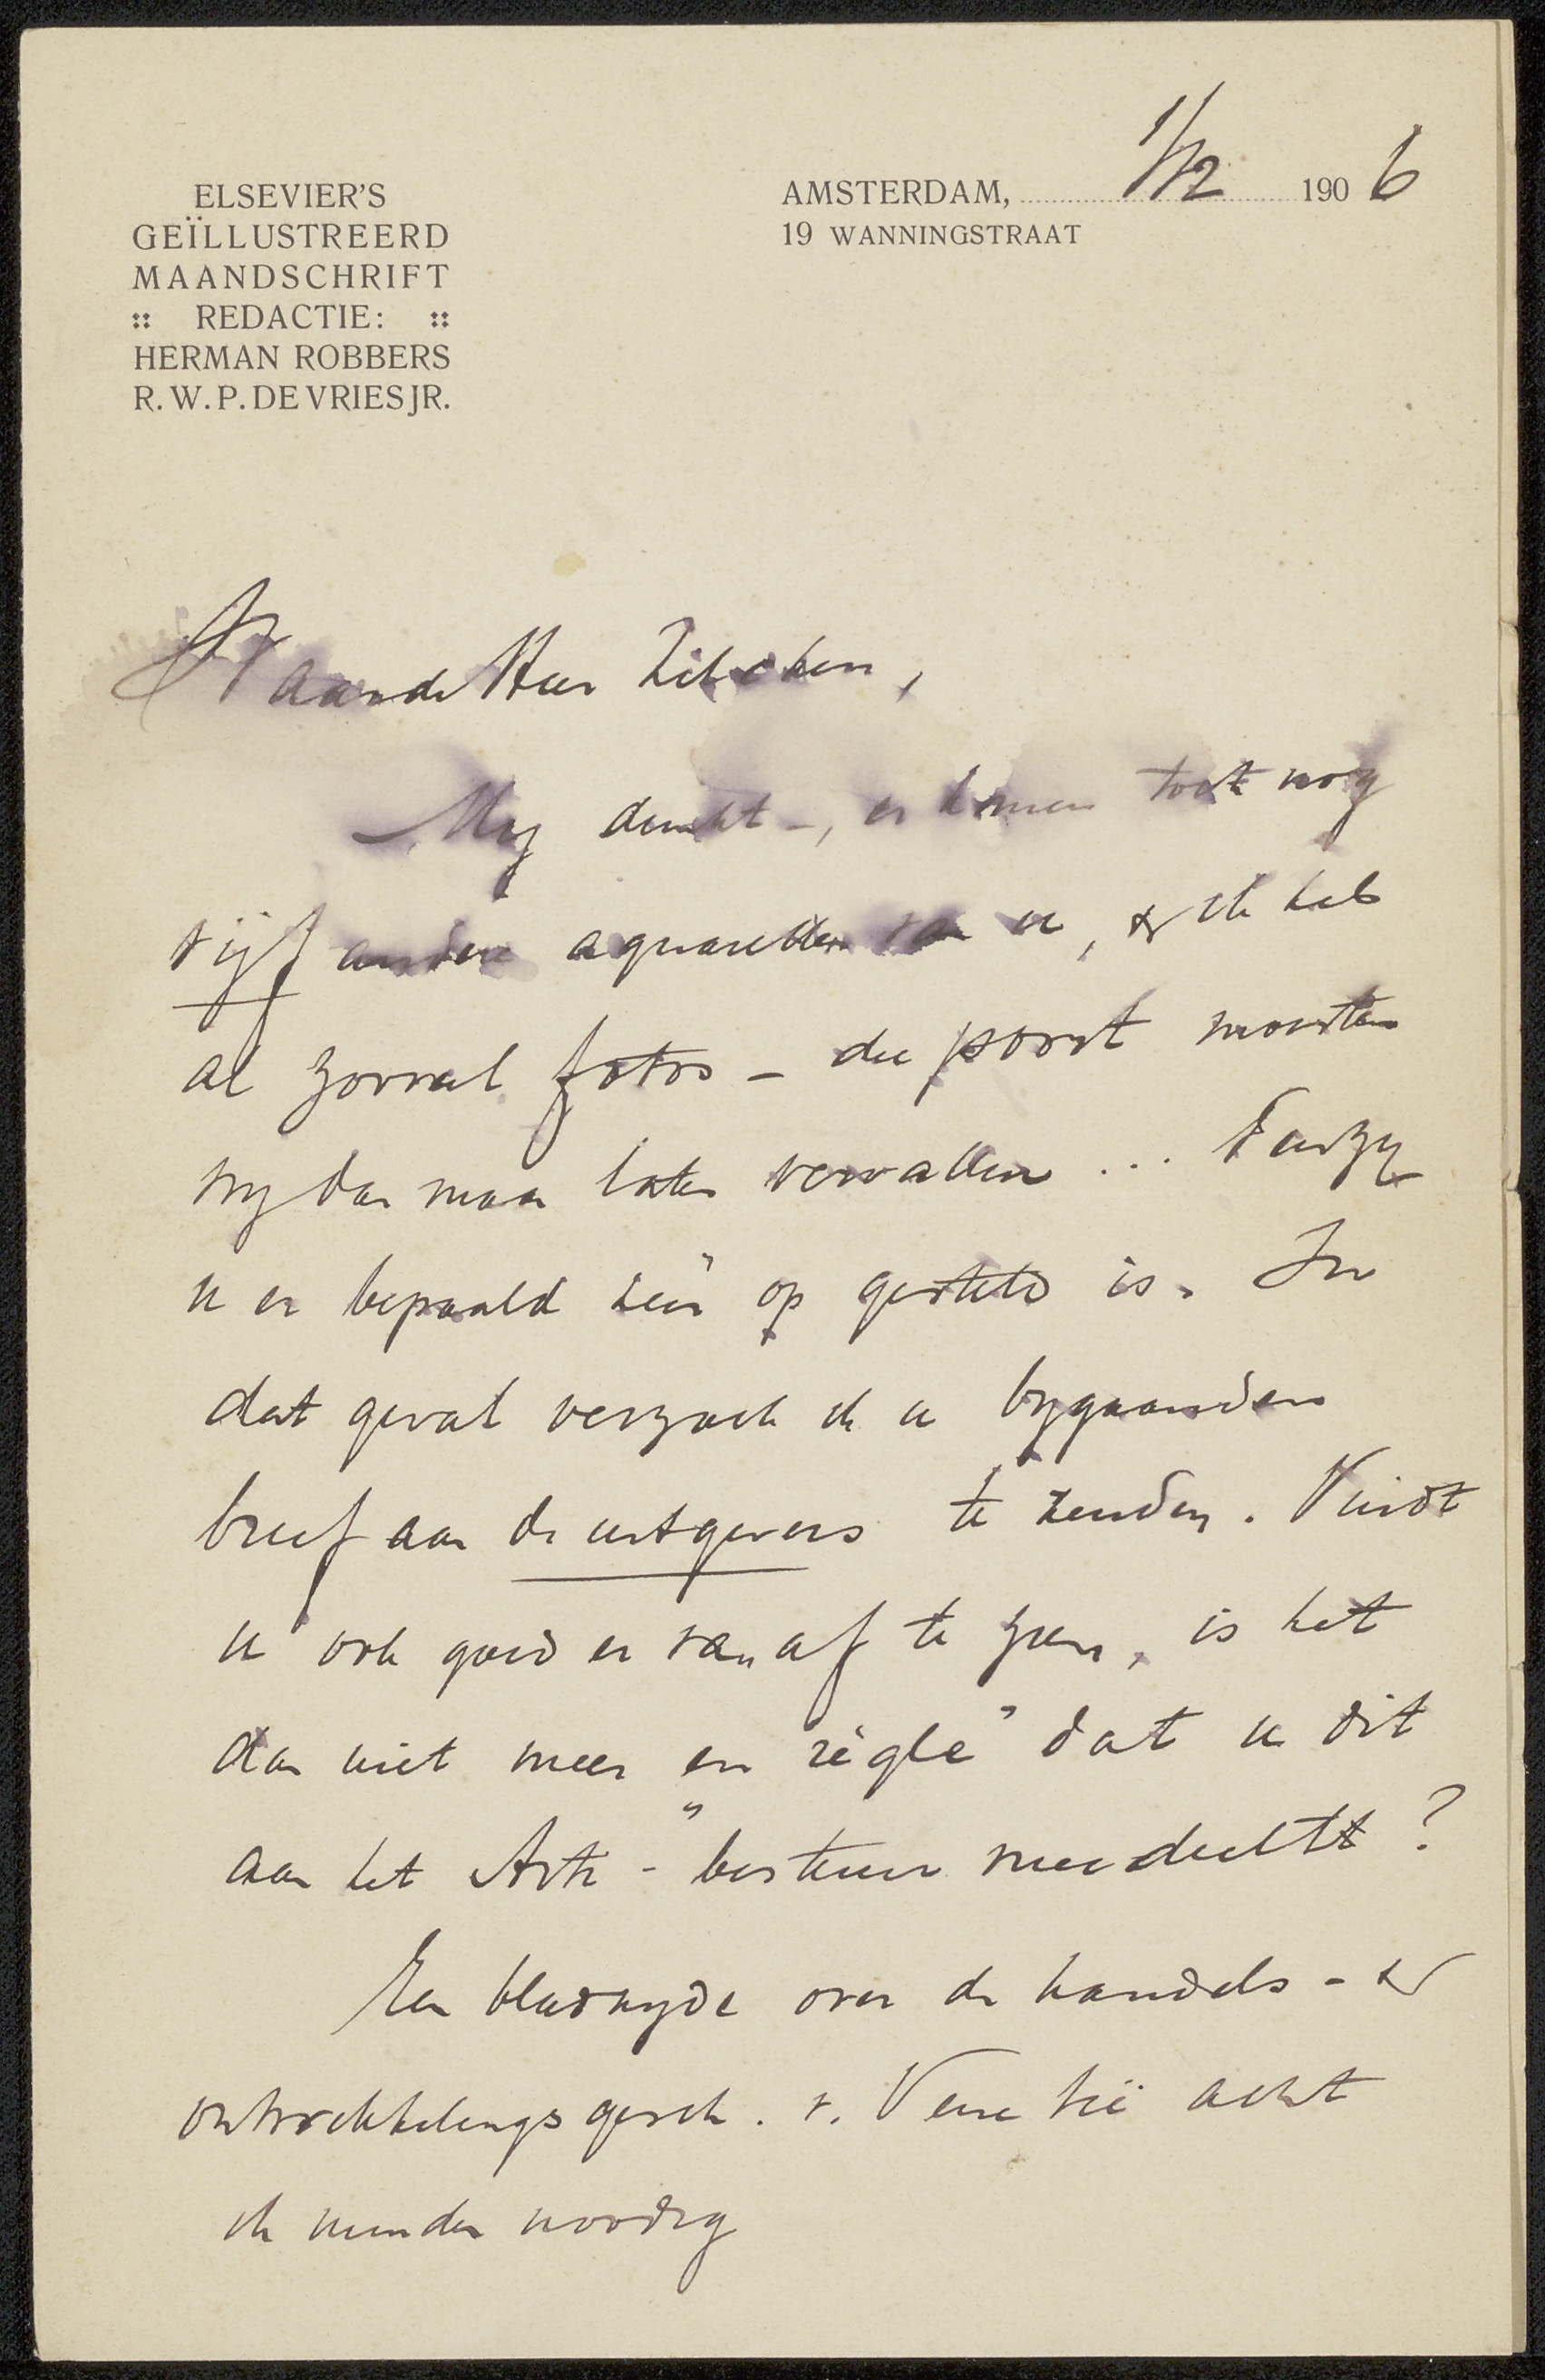 ELSEVIER'S
GEÏLLUSTREERD
MAANDSCHRIFT
:: REDACTIE: ::
HERMAN ROBBERS
R.W.P. DE VRIES JR.
AMSTERDAM, 1/12 1906
19 WANNINGSTRAAT
Waarde Heer Zilcken,
My dunkt –, er komen toch nog
vijf andere aquarellen van u, & ik heb
al zooveel foto's – die poort moesten
wy dan maar laten vervallen ... Tenzy
u er bepaald zéér op gesteld is. In
dat geval verzoek ik u bygaanden
brief aan de uitgevers te zenden. Vindt
u ook goed er van af te zien, is het
dan niet meer "en règle" dat u dit
aan het Arti-bestuur meedeelt?
Een bladzyde over de handels- &
ontwikkelingsgesch. v. Venetië acht
ik minder noodig